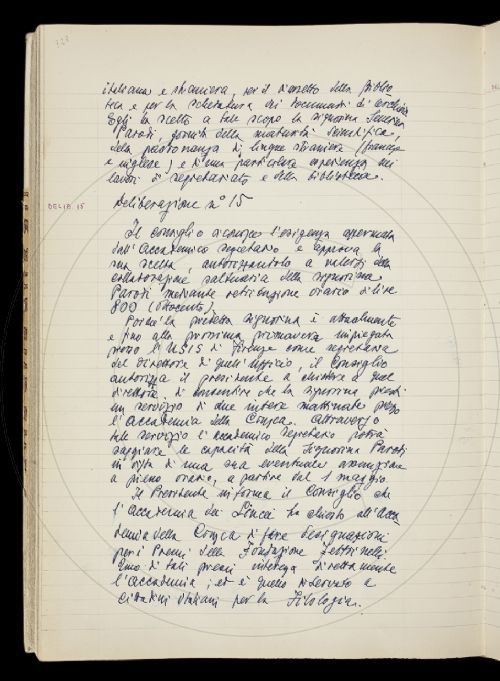 italiana e straniera, per il riassetto della biblio
teca e per la schedatura dei documenti di archivio.
Egli ha scelto a tale scopo la signorina Severina
Parodi, fornita della maturità scientifica,
della padronanza di lingue straniere (francese
e inglese) e di una particolare esperienza nei
lavori di segretariato e della biblioteca.
DELIB. 15
Deliberazione n° 15
Il Consiglio riconosce l'esigenza affermata
dall'Accademico segretario e approva la
sua scelta, autorizzandolo a valersi della
collaborazione saltuaria della signorina
Parodi mediante retribuzione oraria di lire
800 (ottocento).
Poiché la predetta signorina è attualmente
e fino alla prossima primavera impiegata
presso l'USIS di Firenze come segretaria
del direttore di quell'ufficio, il Consiglio
autorizza il presidente a chiedere a quel
direttore di consentire che la signorina presti
un servizio di due intere mattinate presso
l'Accademia della Crusca. Attraverso
tale servizio l'Accademico segretario potrà
saggiare le capacità della signorina Parodi
in vista di una sua eventuale assunzione
a pieno orario, a partire dal 1 maggio.
Il Presidente informa il Consiglio che
l'Accademia dei Lincei ha chiesto all'Acca
demia della Crusca di fare designazioni
per i Premi della Fondazione Feltrinelli.
Uno di tali premi interessa direttamente
l'accademia, ed è quello riservato a
cittadini italiani per la Filologia.